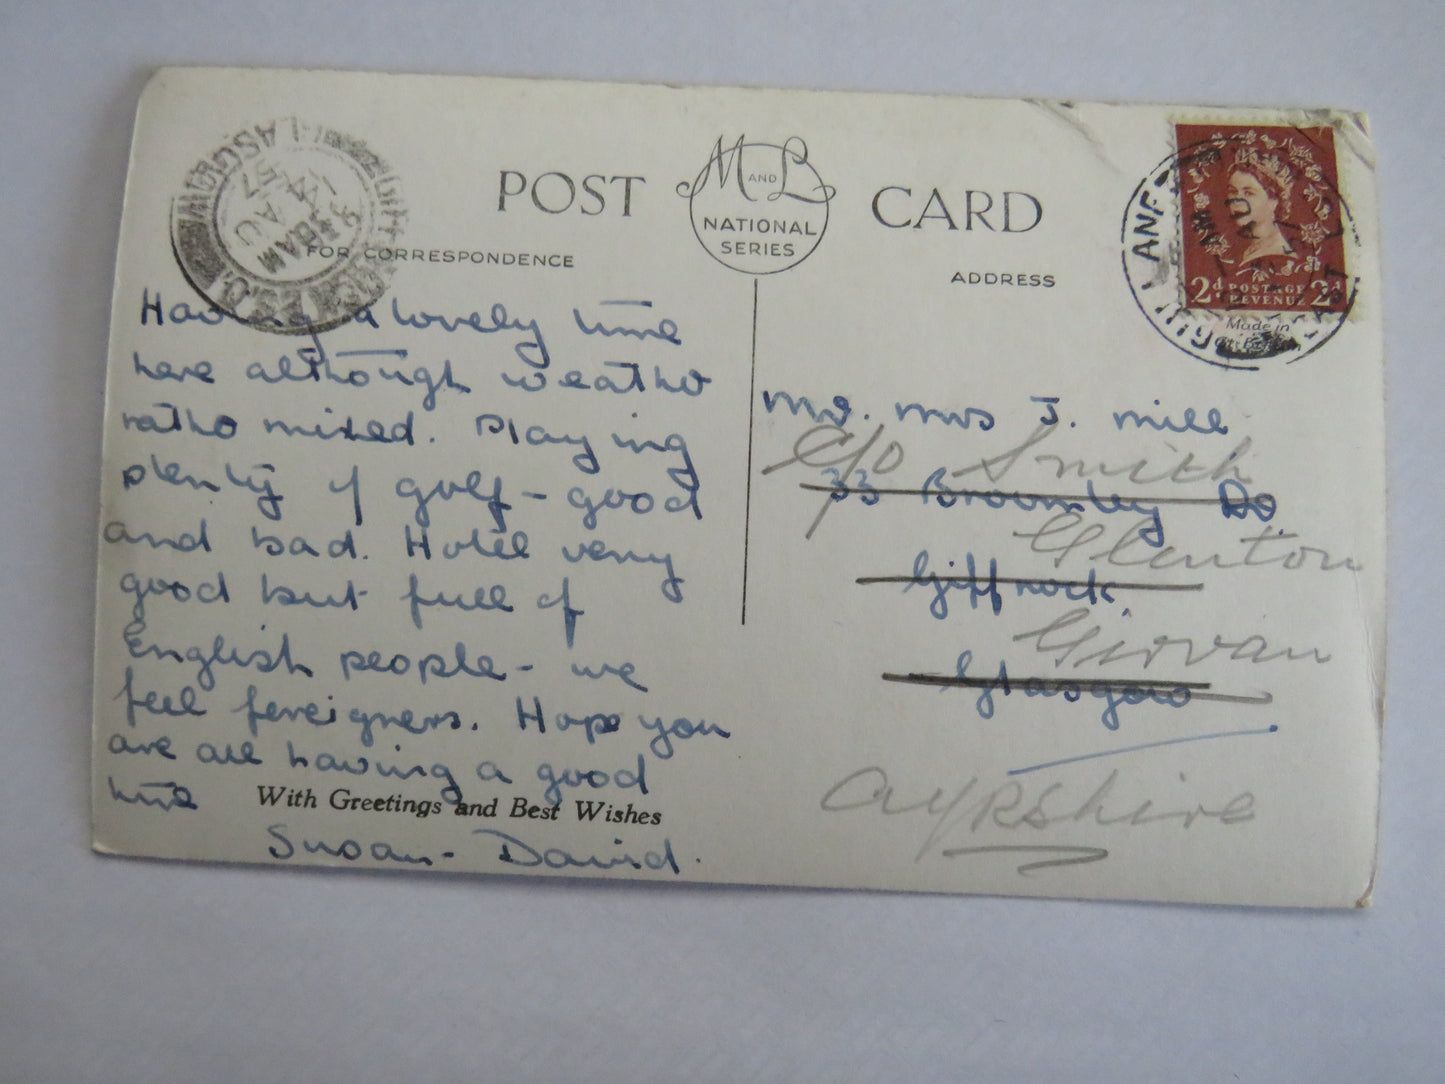 POST M AND L CARD
NATIONAL
SERIES
FOR CORRESPONDENCE
ADDRESS
GLASGOW
9 15 AM
AU
57
ANF
AM
AU
2d POSTAGE 2d
REVENUE
Made in
Having a lovely time
here although weather
rather mixed. Playing
plenty of golf - good
and bad. Hotel very
good but full of
English people - we
feel foreigners. Hope you
are all having a good
time
With Greetings and Best Wishes
Susan - David.
Mr. Mrs J. Mill
c/o Smith
33 Broomley Dr.
Glenton
Giffnock.
Girvan
Glasgow
Ayrshire